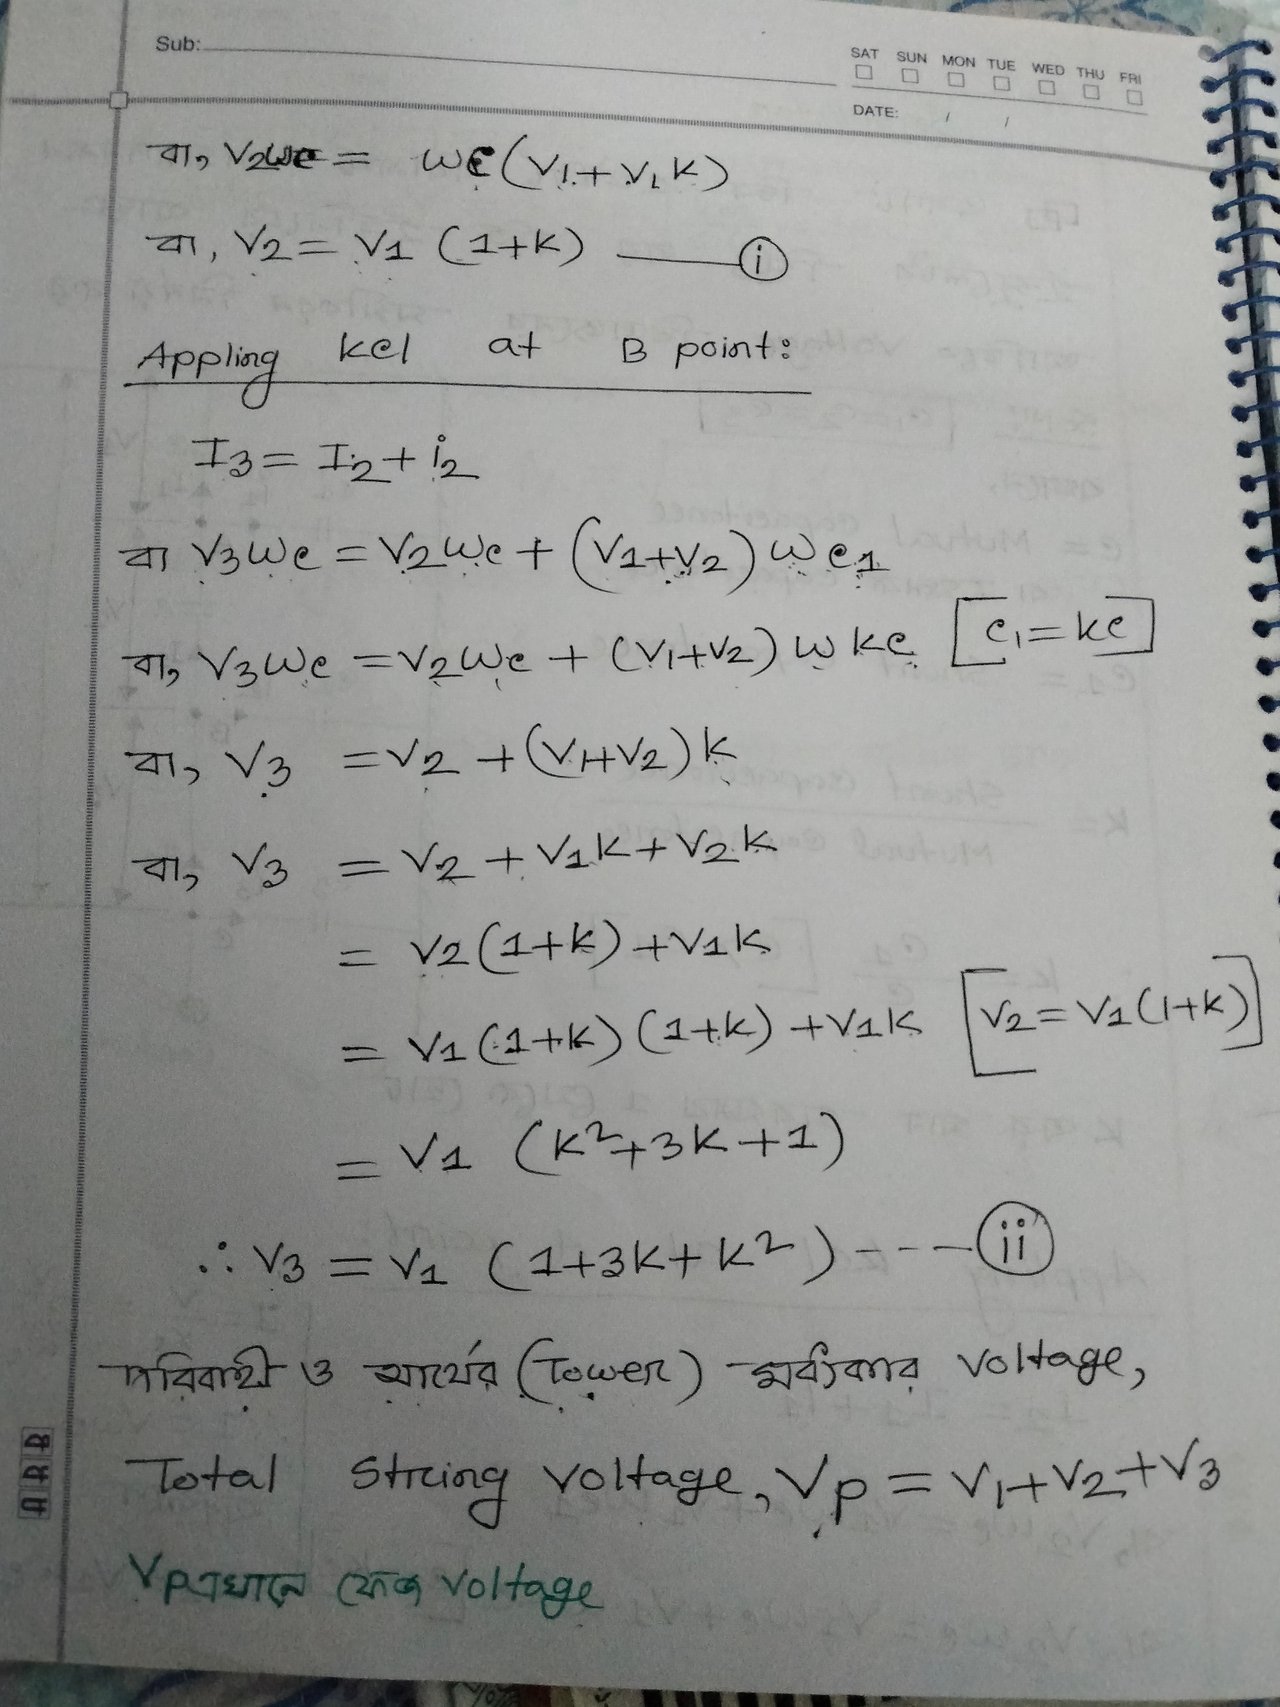 Sub:
SAT SUN MON TUE WED THU FRI
DATE: / /
বা, V2wc = wc(V1+V1K)
বা, V2 = V1 (1+K) ——— i
Appling kcl at B point:
I3 = I2 + i2
বা V3wc = V2wc + (V1+V2) wc1
বা, V3wc = V2wc + (V1+V2) w kc [c1 = kc]
বা, V3 = V2 + (V1+V2) k
বা, V3 = V2 + V1K + V2K
= V2(1+k) + V1K
= V1(1+k) (1+k) + V1K [V2 = V1(1+k)]
= V1 (k²+3K+1)
∴ V3 = V1 (1+3K+K²) --- ii
পরিবাহী ও আর্থের (Tower) মধ্যকার voltage,
Total String voltage, Vp = V1+V2+V3
Vp এখানে ফেজ voltage
ARB